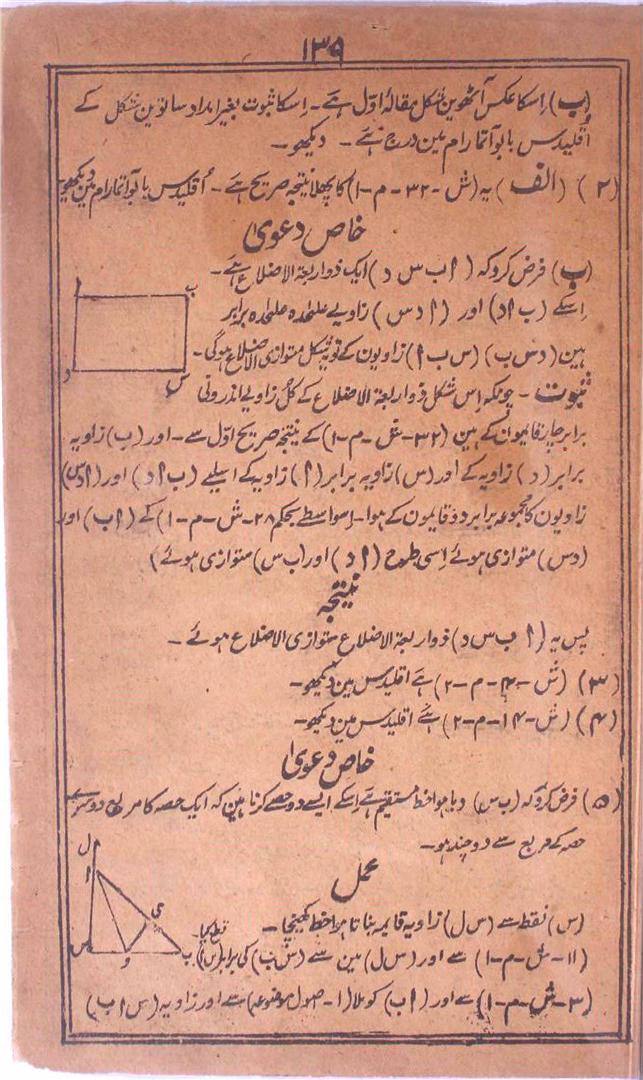 ۱۳۹
(ب) اِسکا عکس آٹھوین شکل مقالۂ اوّل ہے۔ اِسکا ثبوت بغیر امداد ساتوین شکل کے
اُقلیدس بابو آتما رام مین درج ہے۔ دیکھو۔
(۲) (الف) یہ (ش-۳۲-م-۱) کا پچھلا نتیجہ صریح ہے۔ اُقلیدس بابو آتما رام مین دیکھو
خاص دعویٰ
(ب) فرض کرو کہ (ا ب س د) ایک ذو اربعۃ الاضلاع ہے۔
اِسکے (ب ا د) اور (ا د س) زاویے علٰحدہ علٰحدہ برابر
ہین (د س ب) (س ب ا) زاویون کے تو یہ شکل متوازی الاضلاع ہوگی۔
ا ب
د س
ثبوت۔ چونکہ اِس شکل ذو اربعۃ الاضلاع کے کل زاویے اندرونی
برابر چار قایمون کے ہین (۳۲-ش-م-۱) کے نتیجہ صریح اوّل سے۔ اور (ب) زاویہ
برابر (د) زاویہ کے اور (س) زاویہ برابر (ا) زاویہ کے اسلیے (ب ا د) اور (ا د س)
زاویون کا مجموعہ برابر دو قایمون کے ہوا۔ اِسواسطے بحکم ۲۸-ش-م-۱) کے (ا ب) اور
(د س) متوازی ہوئے اِسی طرح (ا د) اور (ب س) متوازی ہوئے)
نتیجہ
پس یہ (ا ب س د) ذو اربعۃ الاضلاع متوازی الاضلاع ہوئے۔
(۳) (ش-۴-م-۲) ہے اقلیدس مین دیکھو۔
(۴) (ش-۱۴-م-۲) ہے اقلیدس مین دیکھو۔
خاص دعویٰ
(۵) فرض کرو کہ (ب س) دیا ہوا خط مستقیم ہے اِسکے ایسے دو حصے کرنا ہین کہ ایک حصہ کا مربع دوسرے
حصہ کے مربع سے دوچند ہو۔
عمل
ل
ا
ی
س و ب
(س) نقطے سے (س ل) زاویہ قایمہ بناتا ہوا خط کھینچا۔
(۱۱-ش-م-۱) سے اور (س ل) مین سے (س ب) کی برابر (س ا) قطع کیا۔
(۳-ش-م-۱) سے اور (ا ب) کو ملا (۱-صول موضوعہ) سے اور زاویہ (س ا ب)